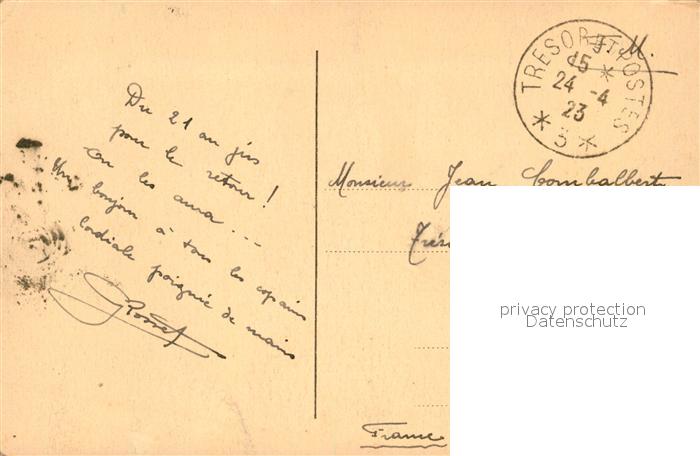 Du 21 au jus
pour le retour !
on les aura ...
Un bonjour à tous les copains
Cordiale poignée de mains
F. M.
TRESOR ET POSTES
15 *
24 -4
23
* 3 *
Monsieur Jean Combalbert
France
privacy protection
Datenschutz